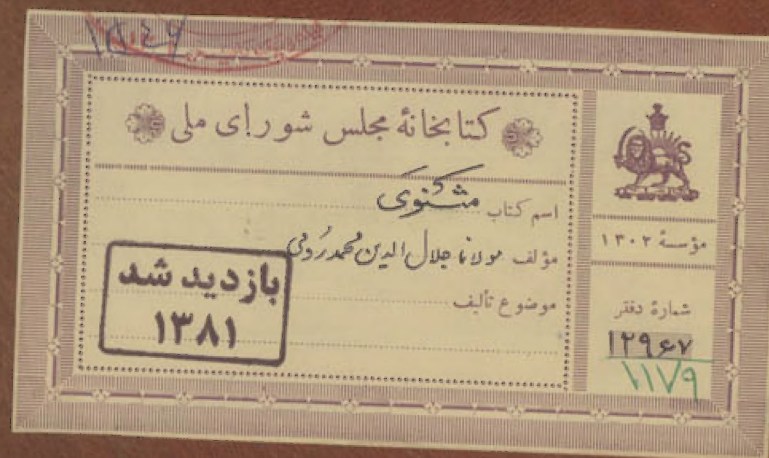 کتابخانهٔ مجلس شورای ملی
اسم کتاب مثنوی
مؤلف مولانا جلال الدین محمد رومی
موضوع تألیف
بازدید شد
۱۳۸۱
مؤسسهٔ ۱۳۰۲
شمارهٔ دفتر
۱۲۹۶۷
۱۱۷۹